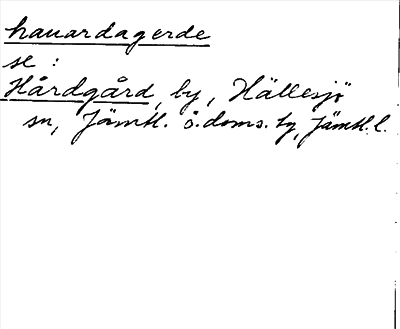 hauardagerde
se :
Hårdgård, by, Hällesjö
sn, Jämtl. ö. doms. tg, Jämtl. l.